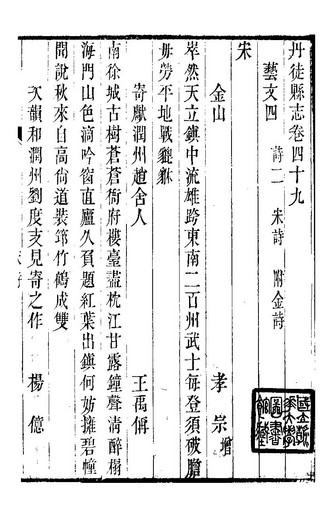 丹徒縣志卷四十九
藝文四　詩二　宋詩　附金詩
宋
金山　孝宗增
崒然天立鎮中流雄跨東南二百州武士每登須破膽
毋勞平地戰貔貅
寄獻潤州趙舍人　王禹偁
南徐城古樹蒼蒼衙府樓臺盡枕江甘露鐘聲清醉榻
海門山色滴吟窗直廬久負題紅葉出鎮何妨擁碧幢
聞說秋來自高尚道裝筇竹鶴成雙
次韻和潤州劉度支見寄之作　楊億